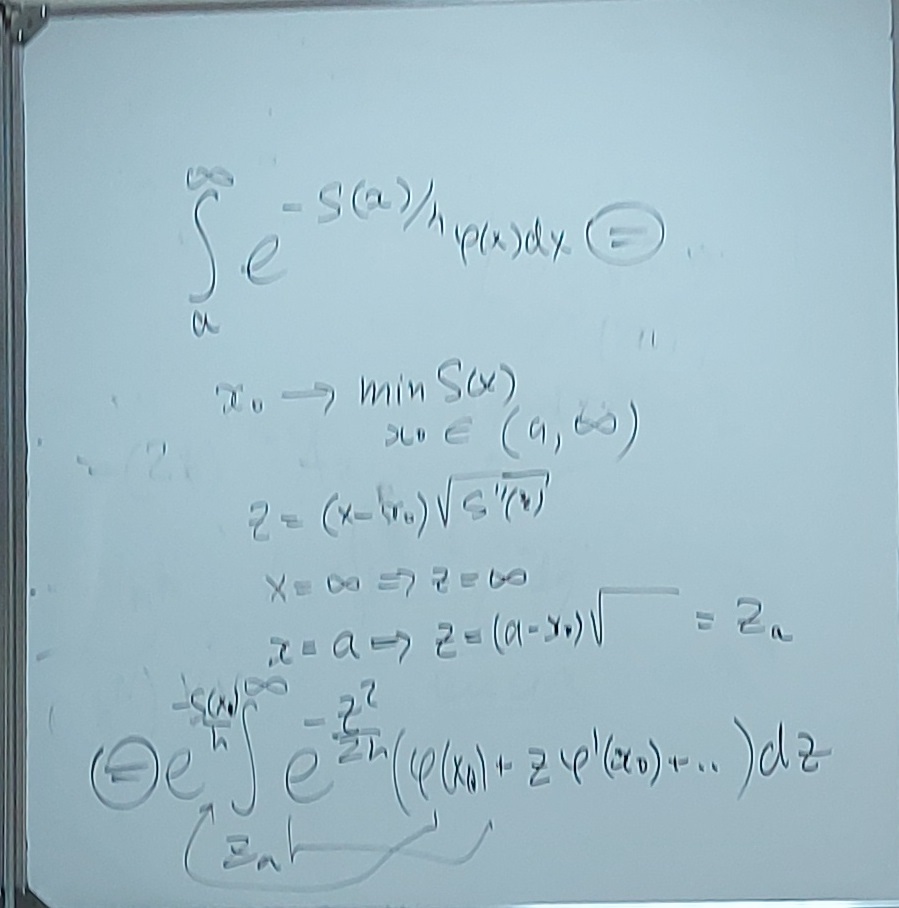 ∫_a^∞ e^{-S(a)/h} φ(x)dx ⊜
x₀ → min S(x)
x₀ ∈ (a, ∞)
z = (x-x₀)√S''(x)
x = ∞ ⇒ z = ∞
x = a ⇒ z = (a-x₀)√ = z_a
⊜ e^{-S(x₀)/h} ∫_{z_a}^∞ e^{-z²/2h} (φ(x₀) + zφ'(x₀) + ..) dz